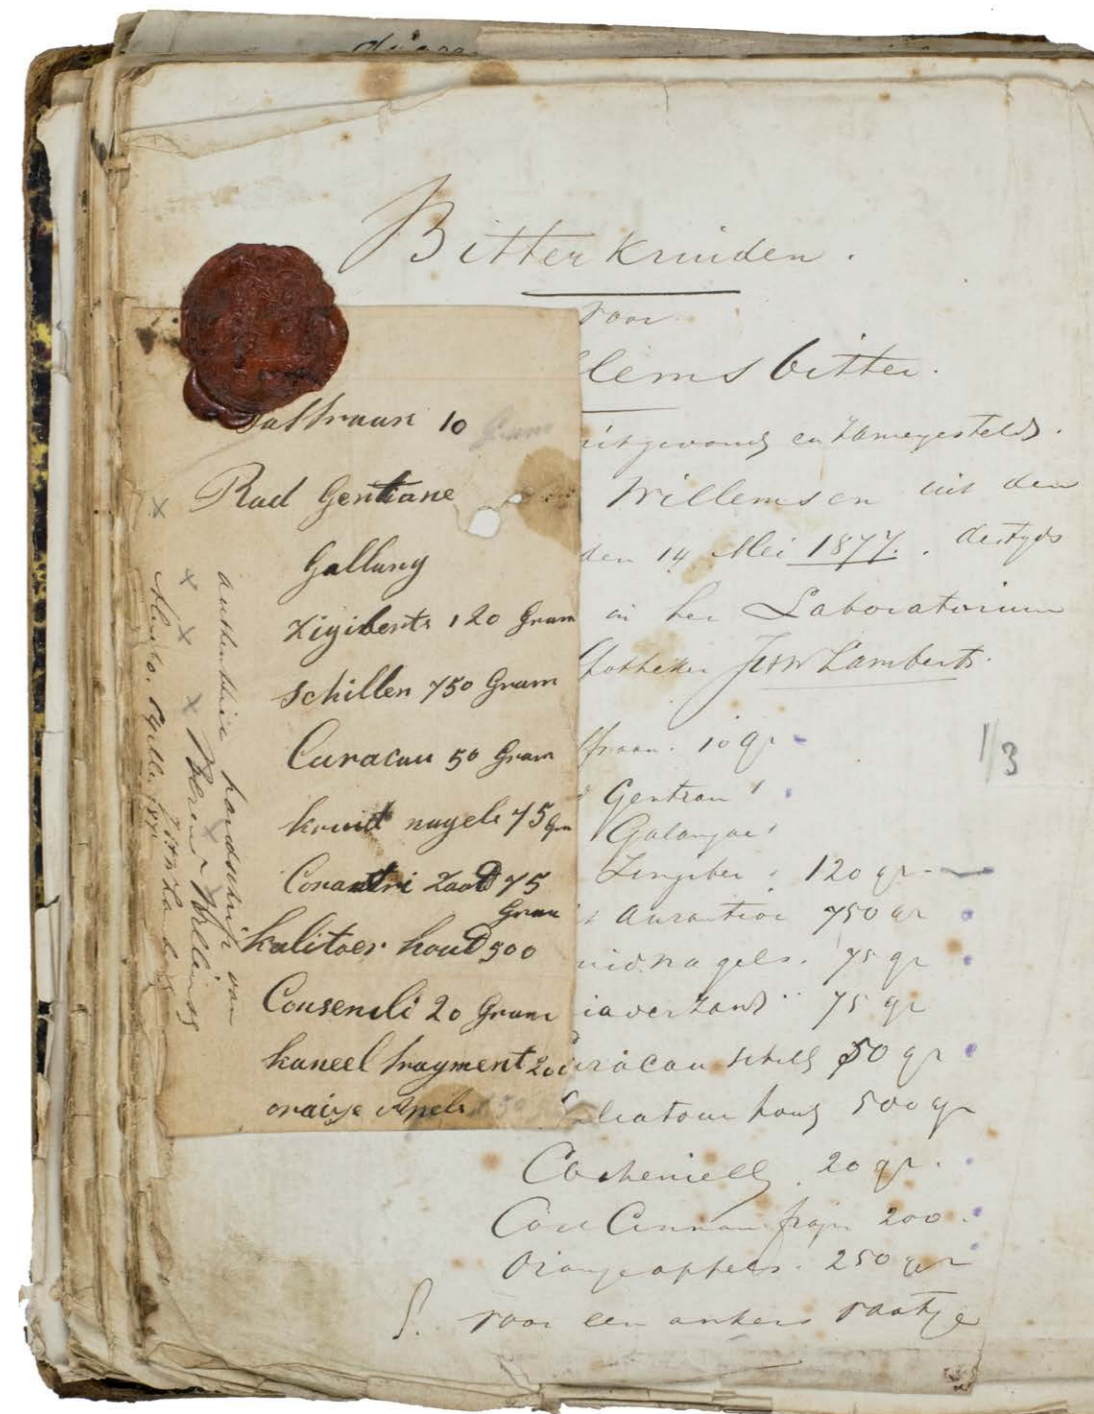 Bitter kruiden.
voor
lems bitter.
en zamengesteld.
Willemsen uit den
den 14 Mei 1877. destyds
in het Laboratorium
potheker Lamberts.
1/3
fraan. 10 gr
Gentian
Galangae
Zingiber 120 gr
Aurantior 750 gr
nagels. 75 gr
iader zand 75 gr
uracau schill 50 gr
liatour hout 500 gr
Cochenielle 20 gr.
Cinnam fragm 200.
Oranjeappels. 250 gr
voor een ankers vaatje
Saffraan 10 Gram
Rad Gentiane
Gallung
Zigiberts 120 Gram
Schillen 750 Gram
Curacau 50 Gram
kruit nagels 75 Gm
Corantri Zaad 75
Gram
kalitoer houd 500
Consenili 20 Gram
kaneel fragment 20
oraige Apels
authentiek handschrift van
Berend Willems